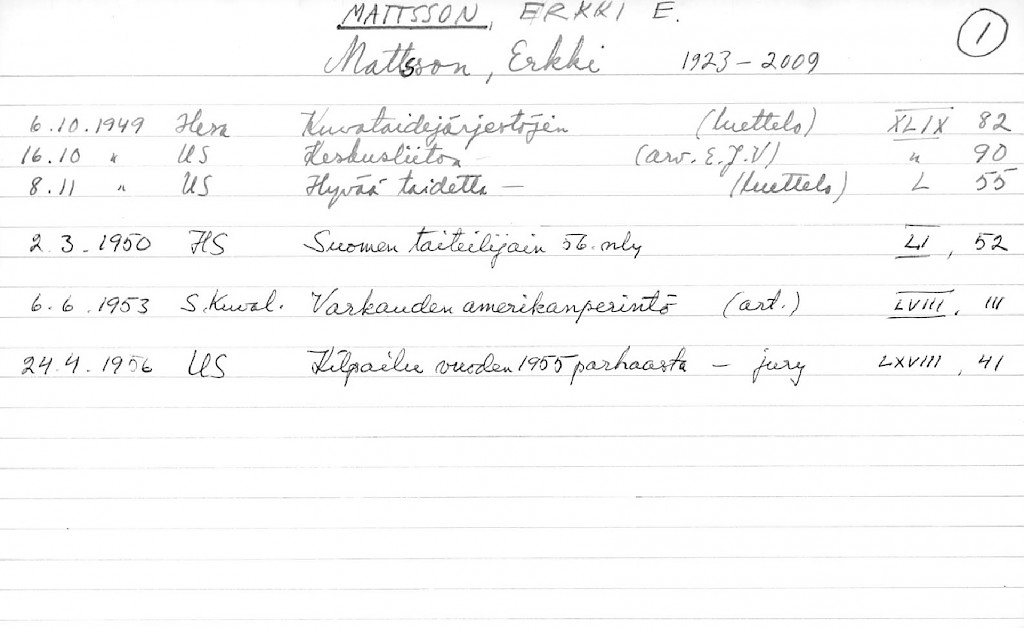 MATTSSON, ERKKI E.
1
Mattsson, Erkki 1923-2009
6.10.1949 Hesa Kuvataidejärjestöjen (luettelo) XLIX 82
16.10 " US Keskusliiton – (arv. E.J.V) " 90
8.11 " US Hyvää taidetta – (luettelo) L 55
2.3.1950 HS Suomen taiteilijain 56. nly LI, 52
6.6.1953 S.Kuval. Varkauden amerikanperintö (art.) LVIII, 111
24.4.1956 US Kilpailu vuoden 1955 parhaasta – jury LXVIII, 41